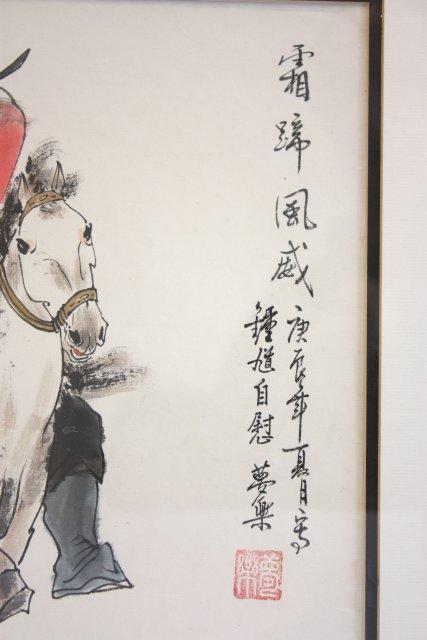 霜蹄風威
庚辰年夏月寫
鍾馗自慰 夢樂
夢樂